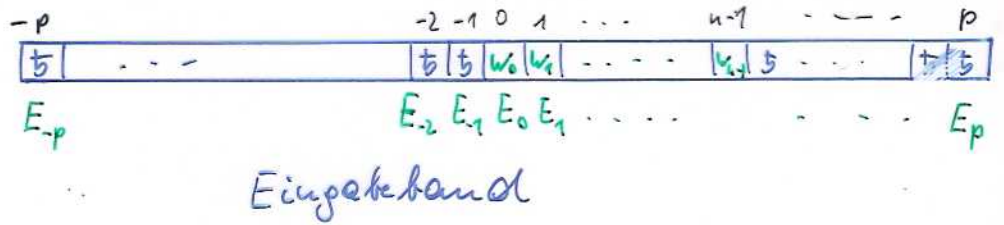 -p -2 -1 0 1 . . . n-1 . - - - p
ƀ . . - ƀ ƀ w₀ w₁ . . . . wₙ₋₁ ƀ . . . ƀ ƀ
E₋ₚ E₋₂ E₋₁ E₀ E₁ . . . . . . . Eₚ
Eingabeband